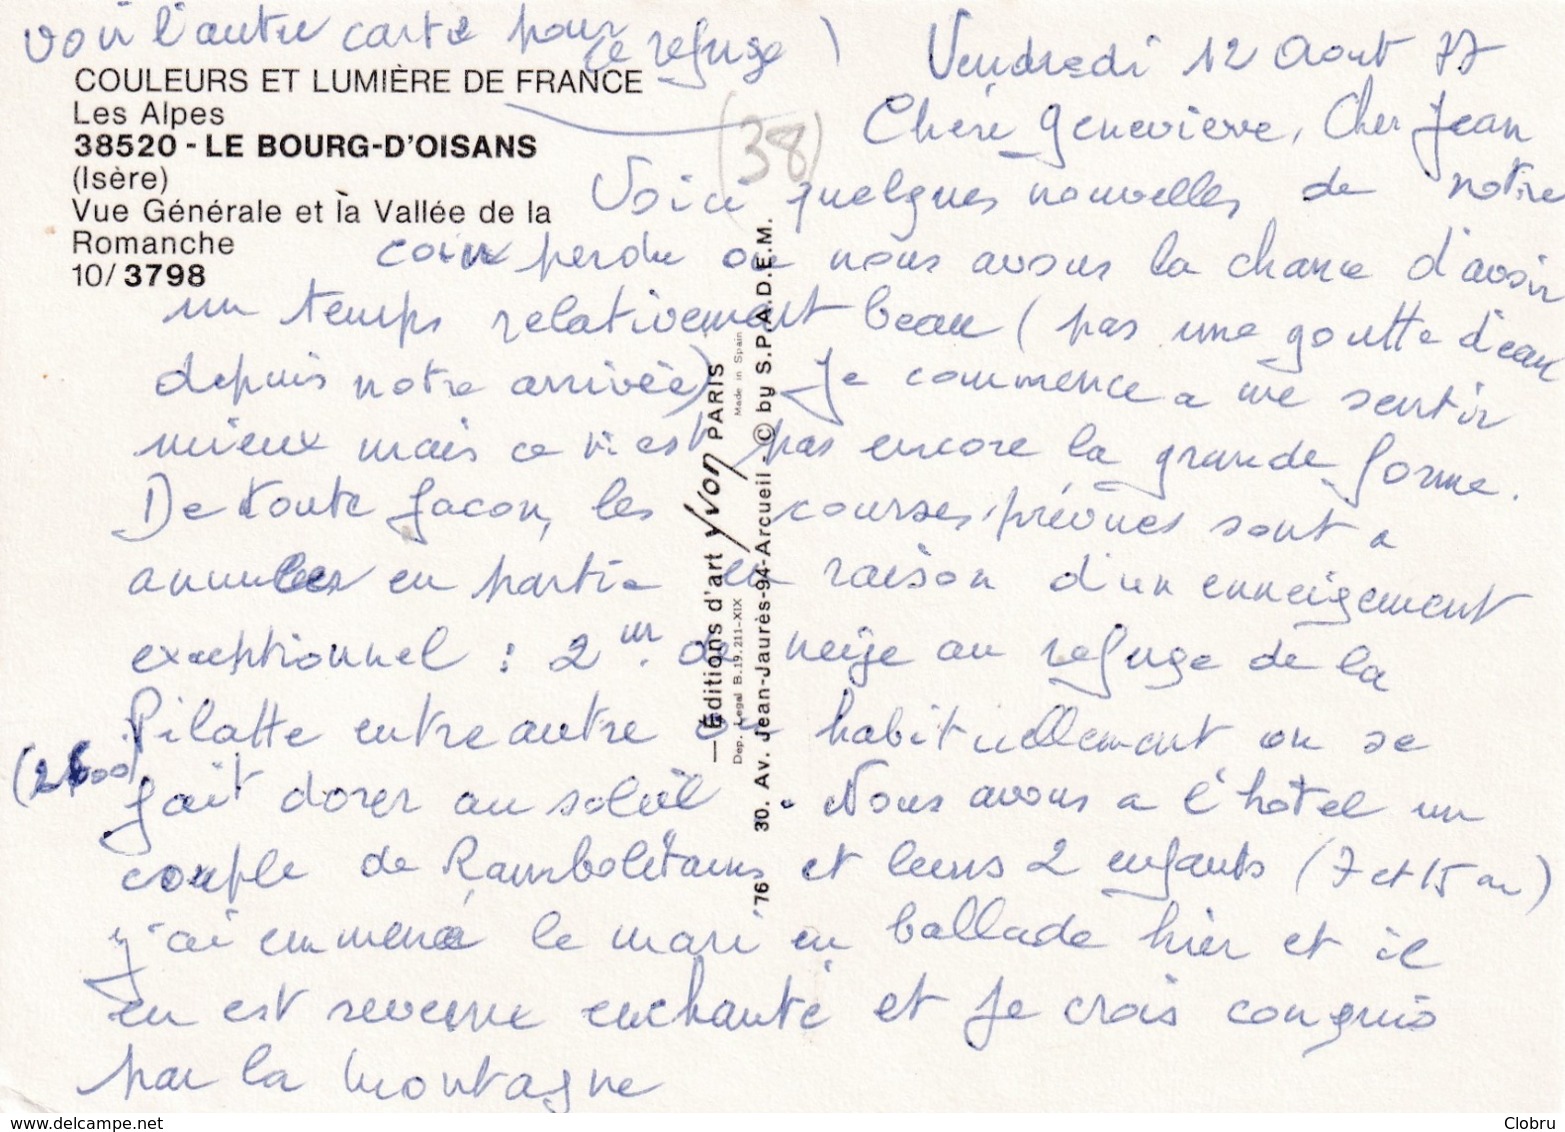 voir l'autre carte pour
le refuge
Vendredi 12 Aout 77
COULEURS ET LUMIÈRE DE FRANCE
Les Alpes
38520 - LE BOURG-D'OISANS
(Isère)
Vue Générale et la Vallée de la
Romanche
10/ 3798
(38)
Chère Geneviève, Cher Jean
Voici quelques nouvelles de notre
coin perdu où nous avons la chance d'avoir
un temps relativement beau (pas une goutte d'eau
depuis notre arrivée) Je commence a me sentir
mieux mais ce n'est pas encore la grande forme.
De toute facon, les courses prévues sont a
annulées en partie en raison d'un enneigement
exceptionnel : 2 m. de neige au refuge de la
Pilatte entre autre où habituellement on se
(2600)
fait dorer au soleil. Nous avons a l'hôtel un
couple de Rambolitains et leurs 2 enfants (7 et 15 an)
j'ai emmené le mari en ballade hier et il
en est revenu enchanté et je crois conquis
par la montagne
— Éditions d'art yvon PARIS
Dep. Legal B.19.211-XIX Made in Spain
'76 30. Av. Jean-Jaurès-94-Arcueil - © by S.P.A.D.E.M.
www.delcampe.net
Clobru